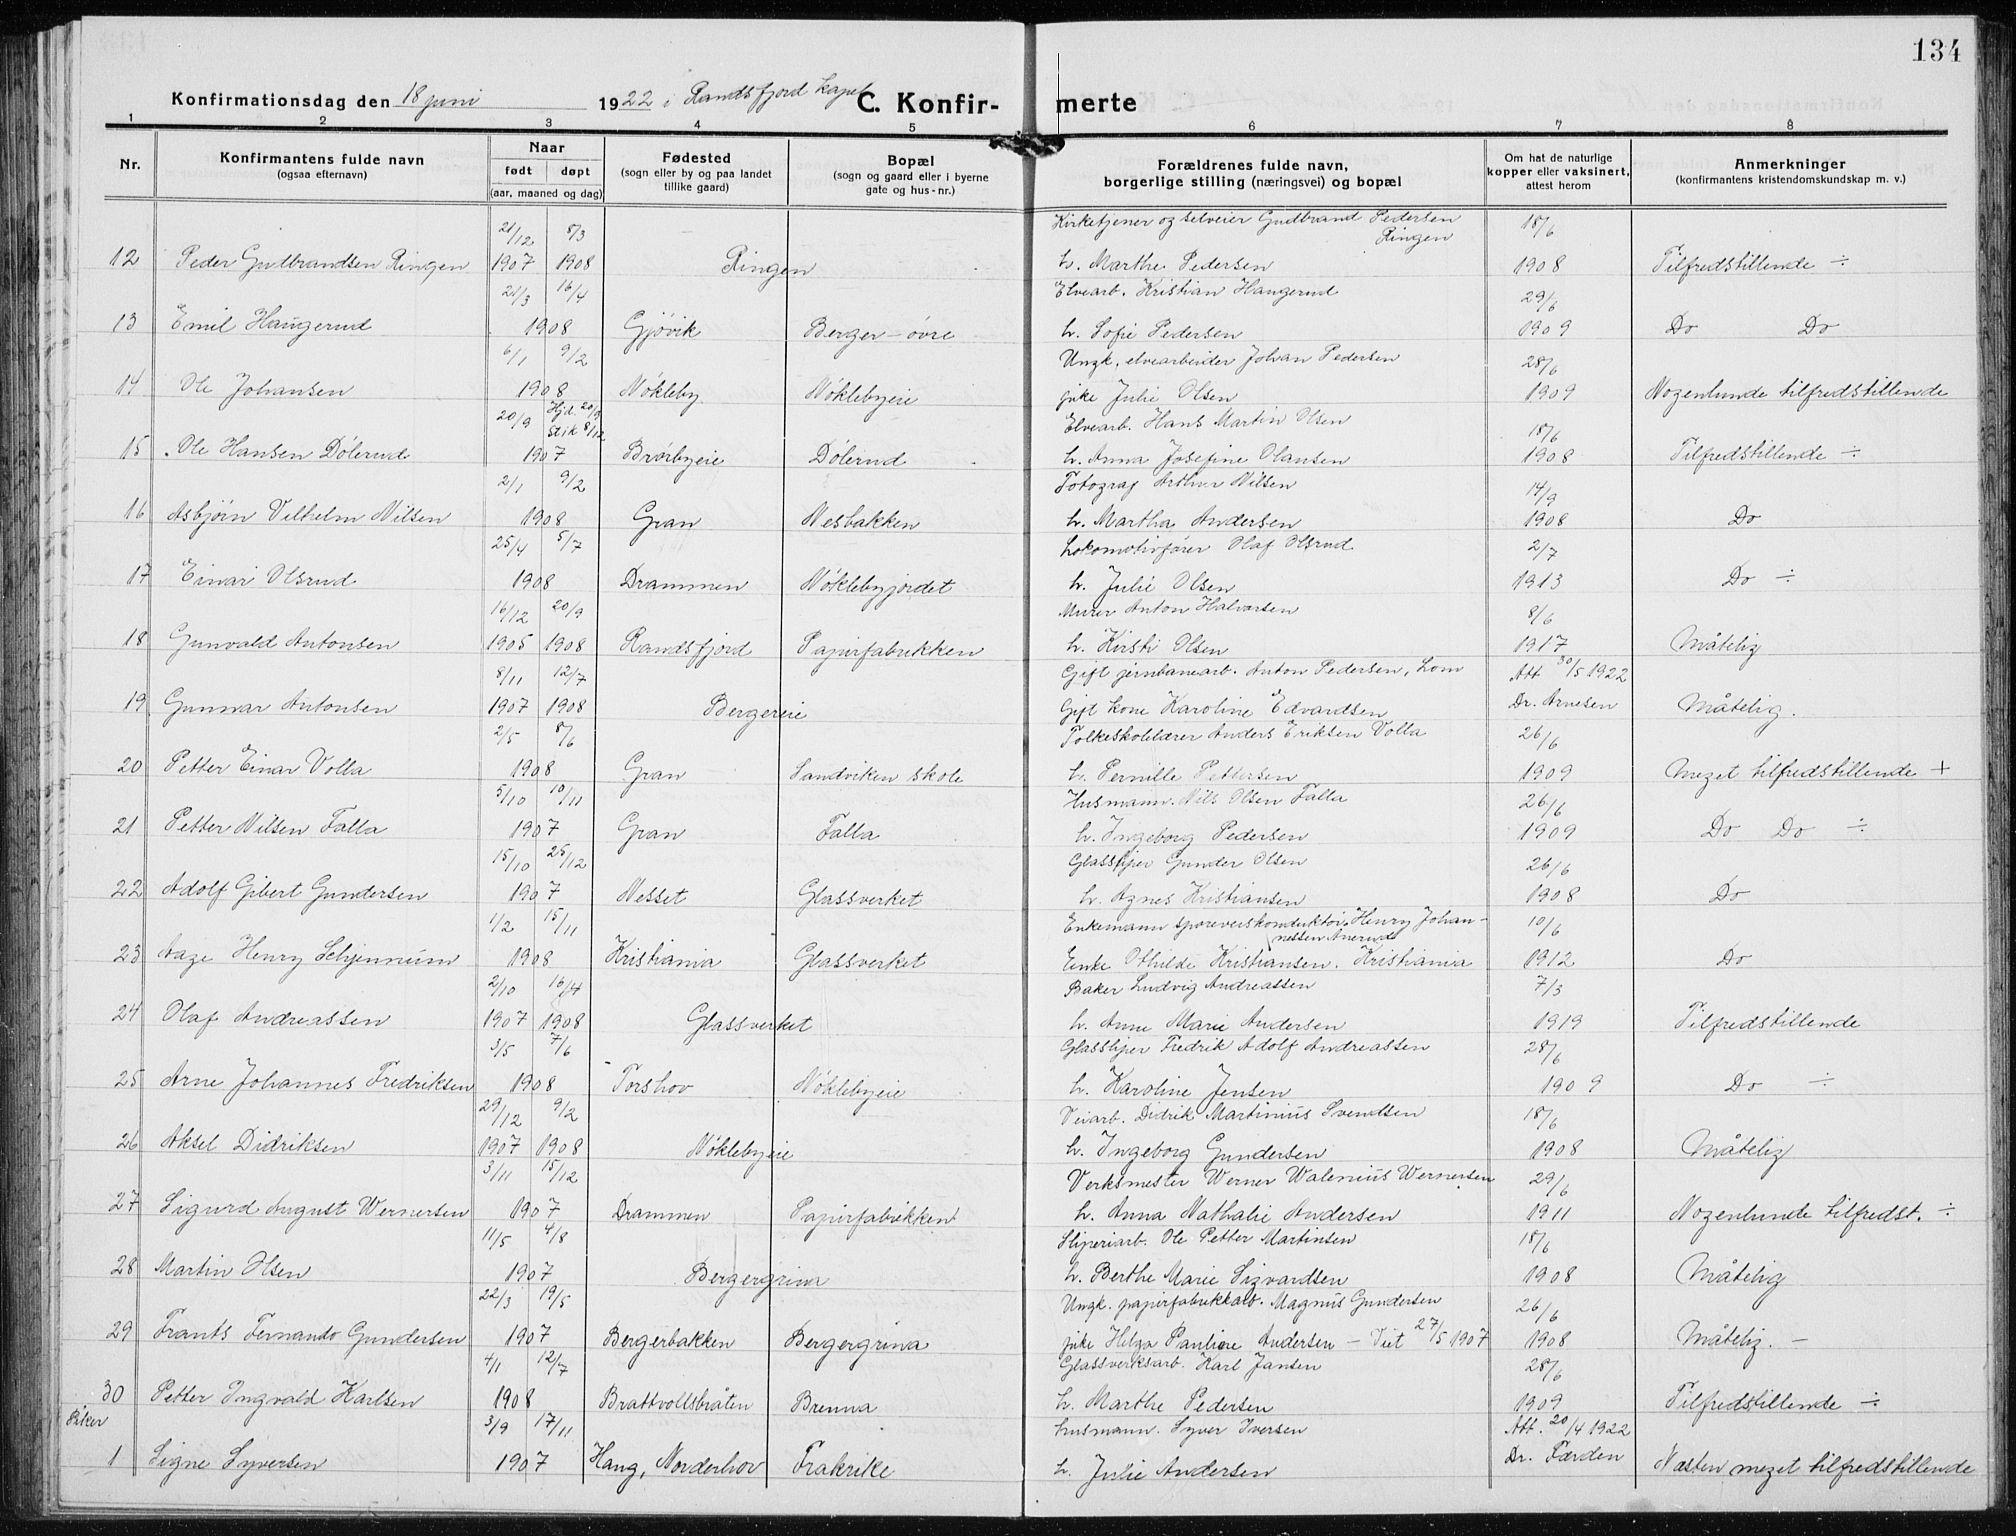 134
Konfirmationsdag den 18 juni 1922 i Randsfjord kapel C. Konfir- merte
1 2 3 4 5 6 7 8
Nr. Konfirmantens fulde navn (ogsaa efternavn) Naar født døpt (aar, maaned og dag) Fødested (sogn eller by og paa landet tillike gaard) Bopæl (sogn og gaard eller i byerne gate og hus-nr.) Forældrenes fulde navn, borgerlige stilling (næringsvei) og bopæl Om hat de naturlige kopper eller vaksinert, attest herom Anmerkninger (konfirmantens kristendomskundskap m. v.)
21/12 8/3 Kirketjener og selveier Gudbrand Pedersen Ringen 18/6
12 Peder Gudbrandsen Ringen 1907 1908 Ringen h. Marthe Pedersen 1908 Tilfredstillende ÷
21/3 16/4 Elvearb. Kristian Haugerud 29/6
13 Emil Haugerud 1908 Gjøvik Berger-øvre h. Sofie Pedersen 1909 Do Do
6/1 9/2 Ungk. elvearbeider Johan Pedersen 28/6
14 Ole Johansen 1908 Nøkleby Nøklebyeie pike Julie Olsen 1909 Nogenlunde tilfredstillende
20/9 Hjd. 20/9 Stk 8/12 Elvearb. Hans Martin Olsen 18/6
15 Ole Hansen Dølerud 1907 Brørbyeie Dølerud h. Anna Josefine Olausen 1908 Tilfredstillende ÷
2/1 9/2 Fotograf Arthur Nilsen 14/9
16 Asbjørn Vilhelm Nilsen 1908 Gran Nesbakken h. Martha Andersen 1908 Do
25/4 5/7 Lokomotivfører Olaf Olsrud 2/7
17 Einar Olsrud 1908 Drammen Nøklebyjordet h. Julie Olsen 1913 Do ÷
16/12 20/9 Murer Anton Halvorsen 8/6
18 Gunvald Antonsen 1905 1908 Randsfjord Papirfabrikken h. Kirsti Olsen 1917 Måtelig
8/11 12/7 Gift jernbanearb. Anton Pedersen, Lom Att 30/5 1922
19 Gunnar Antonsen 1907 1908 Bergereie Gift kone Karoline Edvardsen Dr. Arnesen Måtelig.
2/5 8/6 Folkeskolelærer Anders Eriksen Volla 26/6
20 Petter Einar Volla 1908 Gran Sandviken skole h. Pernille Pettersen 1909 Meget tilfredstillende +
5/10 10/11 Husmann. Nils Olsen Falla 26/6
21 Petter Nilsen Falla 1907 Gran Falla h. Ingeborg Pedersen 1909 Do Do ÷
15/10 26/12 Glassliper Gunder Olsen 26/6
22 Adolf Gibert Gundersen 1907 Nesset Glassverket h. Agnes Kristiansen 1908 Do
1/2 15/11 Enkemann sporveiskonduktør Henry Johannessen Anerud 10/6
23 Aage Henry Schjennum 1908 Kristiania Glassverket Enke Othilde Kristiansen. Kristiania 1912 Do
2/10 16/4 Baker Ludvig Andreassen 7/3
24 Olaf Andreassen 1907 1908 Glassverket h. Anne Marie Andersen 1919 Tilfredstillende
3/5 7/6 Glassliper Fredrik Adolf Andreassen 28/6
25 Arne Johannes Fredriksen 1908 Torshov Nøklebyeie h. Karoline Jensen 1909 Do ÷
29/12 9/2 Veiarb. Didrik Martinius Svendsen 18/6
26 Aksel Didriksen 1907 1908 Nøklebyeie h. Ingeborg Gundersen 1908 Måtelig
3/11 15/12 Verksmester Werner Walenius Wernersen 29/6
27 Sigurd August Wernersen 1907 Drammen Papirfabrikken h. Anna Nathalie Andersen 1911 Nogenlunde tilfredst. ÷
11/5 4/8 Sliperiarb. Ole Petter Martinsen 18/6
28 Martin Olsen 1907 Bergergrina h. Berthe Marie Sigvardsen 1908 Måtelig
22/3 19/5 Ungk. papirfabrikkarb. Magnus Gundersen 26/6
29 Frants Fernando Gundersen 1907 Bergerbakken Bergergrina pike Helga Pauline Andersen - Viet 27/5 1907 1908 Måtelig. -
4/1 12/7 Glassverksarb. Karl Jansen 28/6
30 Petter Ingvald Karlsen 1908 Brattvollsbråten Brenna h. Marthe Pedersen 1909 Tilfredstillende ÷
Piker 3/9 17/11 Husmann. Syver Iversen Att. 20/4 1922
1 Signe Syversen 1907 Haug, Norderhov Frakrike h. Julie Andersen Dr. Færden Næsten meget tilfredstillende